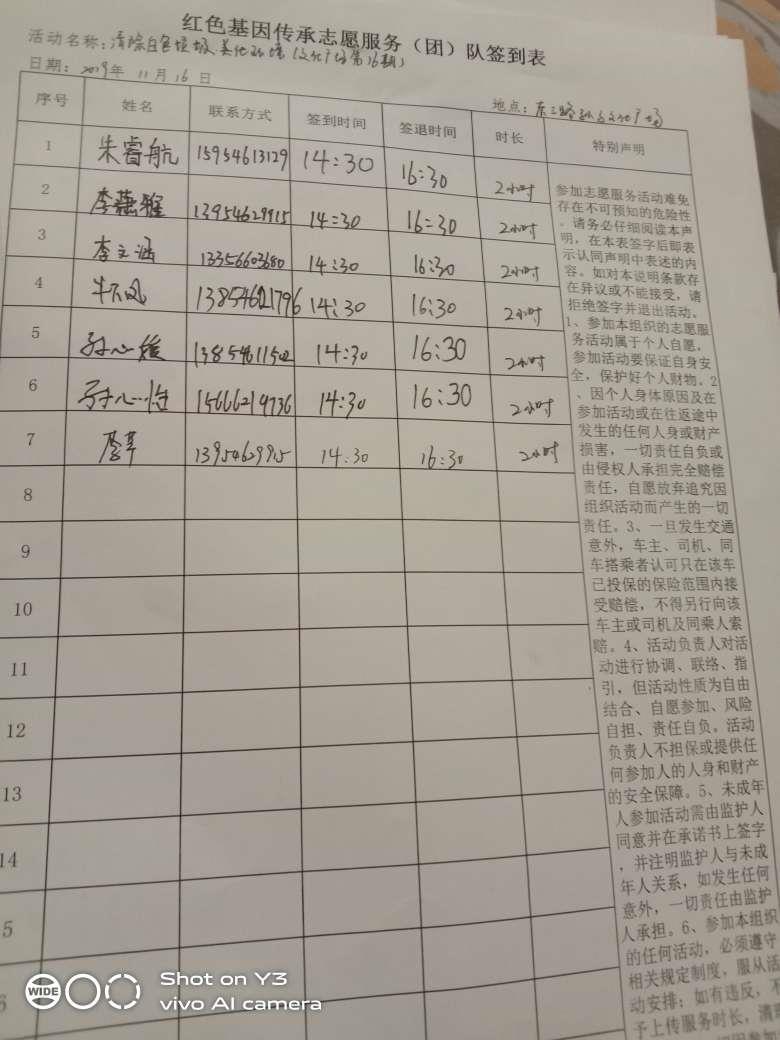 红色基因传承志愿服务（团）队签到表
活动名称：清除白色垃圾 美化环境（文化广场第16期）
日期：2019年 11月16日
地点：东三路孙子文化广场
序号 姓名 联系方式 签到时间 签退时间 时长 特别声明
1 朱睿航 15954613129 14:30 16:30 2小时
2 李燕雅 13954629915 14:30 16:30 2小时
3 李文涵 13356603680 14:30 16:30 2小时
4 13854621796 14:30 16:30 2小时
5 孙心 13854611502 14:30 16:30 2小时
6 孙心怡 15666219736 14:30 16:30 2小时
7 13954629915 14:30 16:30 2小时
8
9
10
11
12
13
14
5
6
参加志愿服务活动难免
存在不可预知的危险性
。请务必仔细阅读本声
明，在本表签字后即表
示认同声明中表述的内
容。如对本说明条款存
在异议或不能接受，请
拒绝签字并退出活动。
1、参加本组织的志愿服
务活动属于个人自愿，
参加活动要保证自身安
全，保护好个人财物。2
、因个人身体原因及在
参加活动或在往返途中
发生的任何人身或财产
损害，一切责任自负或
由侵权人承担完全赔偿
责任，自愿放弃追究因
组织活动而产生的一切
责任。3、一旦发生交通
意外，车主、司机、同
车搭乘者认可只在该车
已投保的保险范围内接
受赔偿，不得另行向该
车主或司机及同乘人索
赔。4、活动负责人对活
动进行协调、联络、指
引，但活动性质为自由
结合、自愿参加、风险
自担、责任自负。活动
负责人不担保或提供任
何参加人的人身和财产
的安全保障。5、未成年
人参加活动需由监护人
同意并在承诺书上签字
，并注明监护人与未成
年人关系，如发生任何
意外，一切责任由监护
人承担。6、参加本组织
的任何活动，必须遵守
相关规定制度，服从活
动安排；如有违反，不
予上传服务时长，清
WIDE
Shot on Y3
vivo AI camera